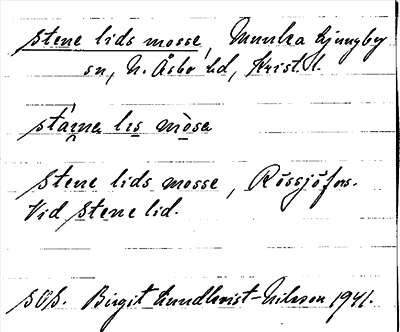 Stene lids mosse, Munka Ljungby
sn, N. Åsbo hd, Krist. l.
sta̯i̯na lis mosa
Stene lids mosse, Rössjöfors.
Vid Stene lid.
SOS. Birgit Lundkvist-Nilsson 1941.